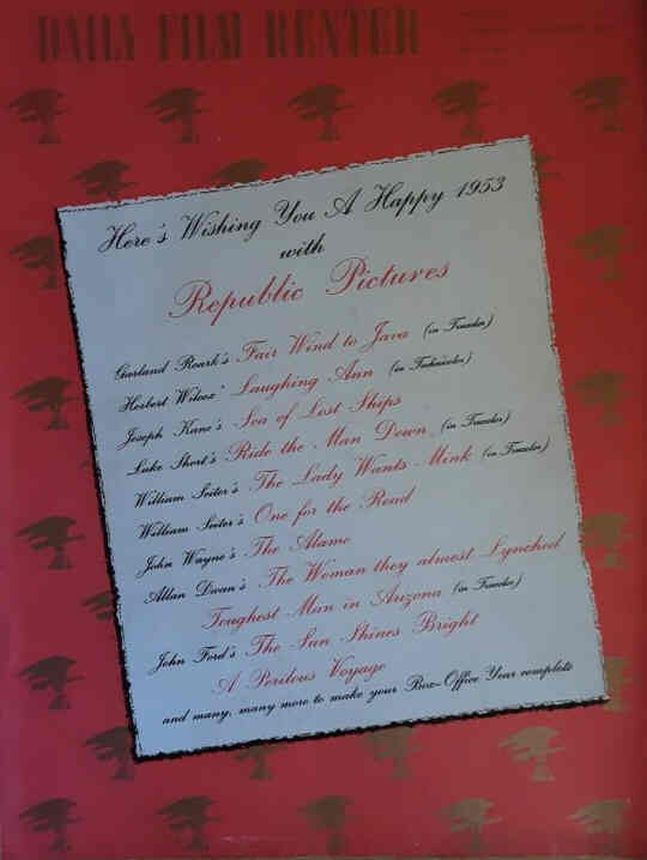 DAILY FILM RENTER
Here's Wishing You A Happy 1953
with
Republic Pictures
Garland Roark's Fair Wind to Java (in Trucolor)
Herbert Wilcox' Laughing Ann (in Technicolor)
Joseph Kane's Sea of Lost Ships
Luke Short's Ride the Man Down (in Trucolor)
William Seiter's The Lady Wants Mink (in Trucolor)
William Seiter's One for the Road
John Wayne's The Alamo
Allan Dwan's The Woman they almost Lynched
Toughest Man in Arizona (in Trucolor)
John Ford's The Sun Shines Bright
A Perilous Voyage
and many, many more to make your Box-Office Year complete